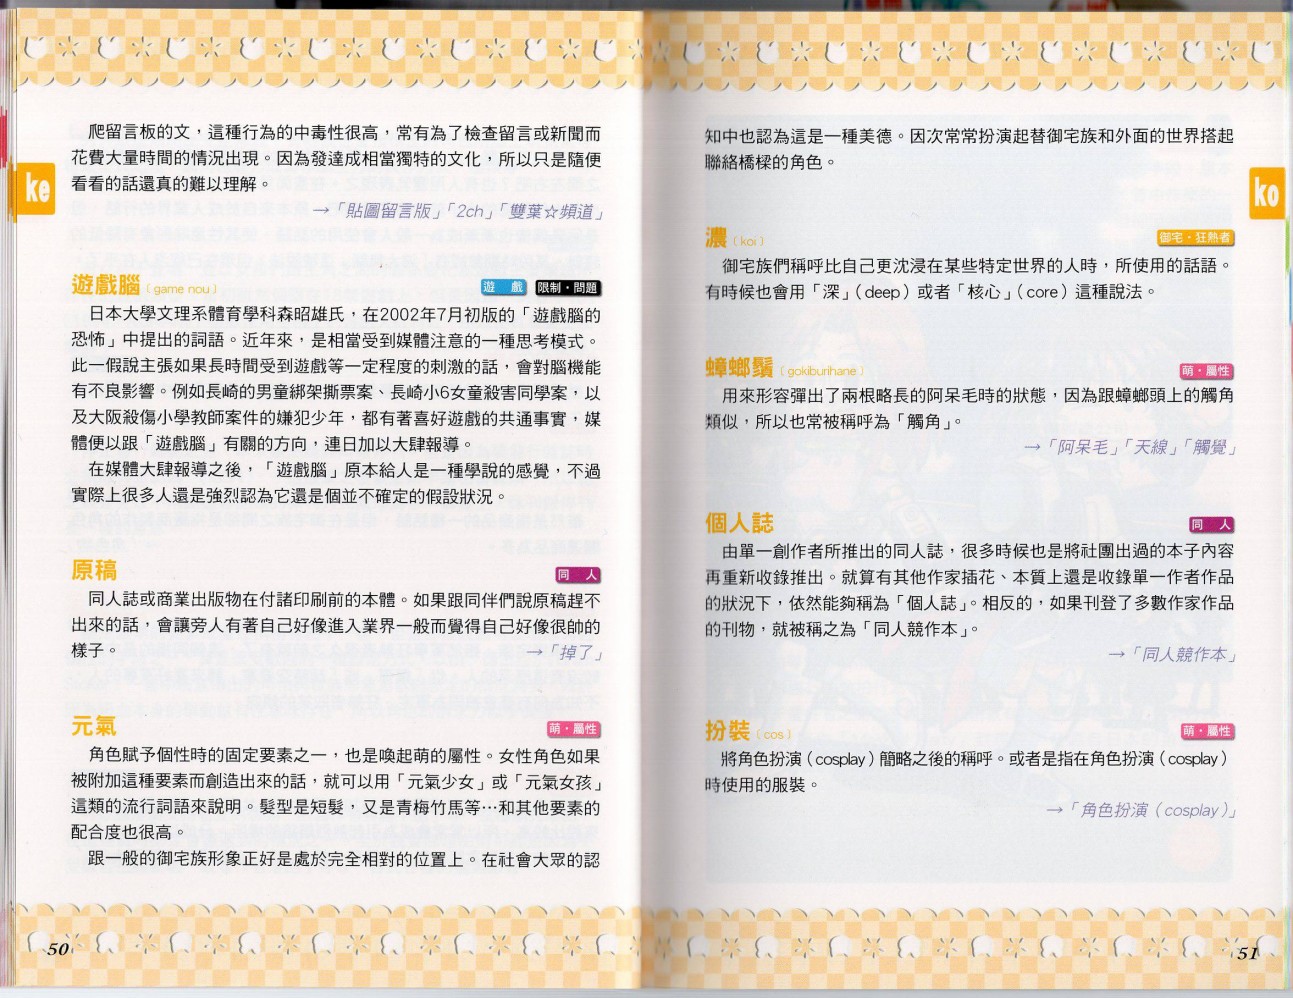 爬留言板的文，這種行為的中毒性很高，常有為了檢查留言或新聞而
花費大量時間的情況出現。因為發達成相當獨特的文化，所以只是隨便
看看的話還真的難以理解。
→「貼圖留言版」「2ch」「雙葉☆頻道」
ke
遊戲腦（game nou） 遊 戲 限制・問題
日本大學文理系體育學科森昭雄氏，在2002年7月初版的「遊戲腦的
恐怖」中提出的詞語。近年來，是相當受到媒體注意的一種思考模式。
此一假說主張如果長時間受到遊戲等一定程度的刺激的話，會對腦機能
有不良影響。例如長崎的男童綁架撕票案、長崎小6女童殺害同學案，以
及大阪殺傷小學教師案件的嫌犯少年，都有著喜好遊戲的共通事實，媒
體便以跟「遊戲腦」有關的方向，連日加以大肆報導。
在媒體大肆報導之後，「遊戲腦」原本給人是一種學說的感覺，不過
實際上很多人還是強烈認為它還是個並不確定的假設狀況。
原稿 同 人
同人誌或商業出版物在付諸印刷前的本體。如果跟同伴們說原稿趕不
出來的話，會讓旁人有著自己好像進入業界一般而覺得自己好像很帥的
樣子。 →「掉了」
元氣 萌・屬性
角色賦予個性時的固定要素之一，也是喚起萌的屬性。女性角色如果
被附加這種要素而創造出來的話，就可以用「元氣少女」或「元氣女孩」
這類的流行詞語來說明。髮型是短髮，又是青梅竹馬等…和其他要素的
配合度也很高。
跟一般的御宅族形象正好是處於完全相對的位置上。在社會大眾的認
50
知中也認為這是一種美德。因次常常扮演起替御宅族和外面的世界搭起
聯絡橋樑的角色。
ko
濃（koi） 御宅・狂熱者
御宅族們稱呼比自己更沈浸在某些特定世界的人時，所使用的話語。
有時候也會用「深」（deep）或者「核心」（core）這種說法。
蟑螂鬚（gokiburihane） 萌・屬性
用來形容彈出了兩根略長的阿呆毛時的狀態，因為跟蟑螂頭上的觸角
類似，所以也常被稱呼為「觸角」。
→「阿呆毛」「天線」「觸覺」
個人誌 同 人
由單一創作者所推出的同人誌，很多時候也是將社團出過的本子內容
再重新收錄推出。就算有其他作家插花、本質上還是收錄單一作者作品
的狀況下，依然能夠稱為「個人誌」。相反的，如果刊登了多數作家作品
的刊物，就被稱之為「同人競作本」。
→「同人競作本」
扮裝（cos） 萌・屬性
將角色扮演（cosplay）簡略之後的稱呼。或者是指在角色扮演（cosplay）
時使用的服裝。
→「角色扮演（cosplay）」
51